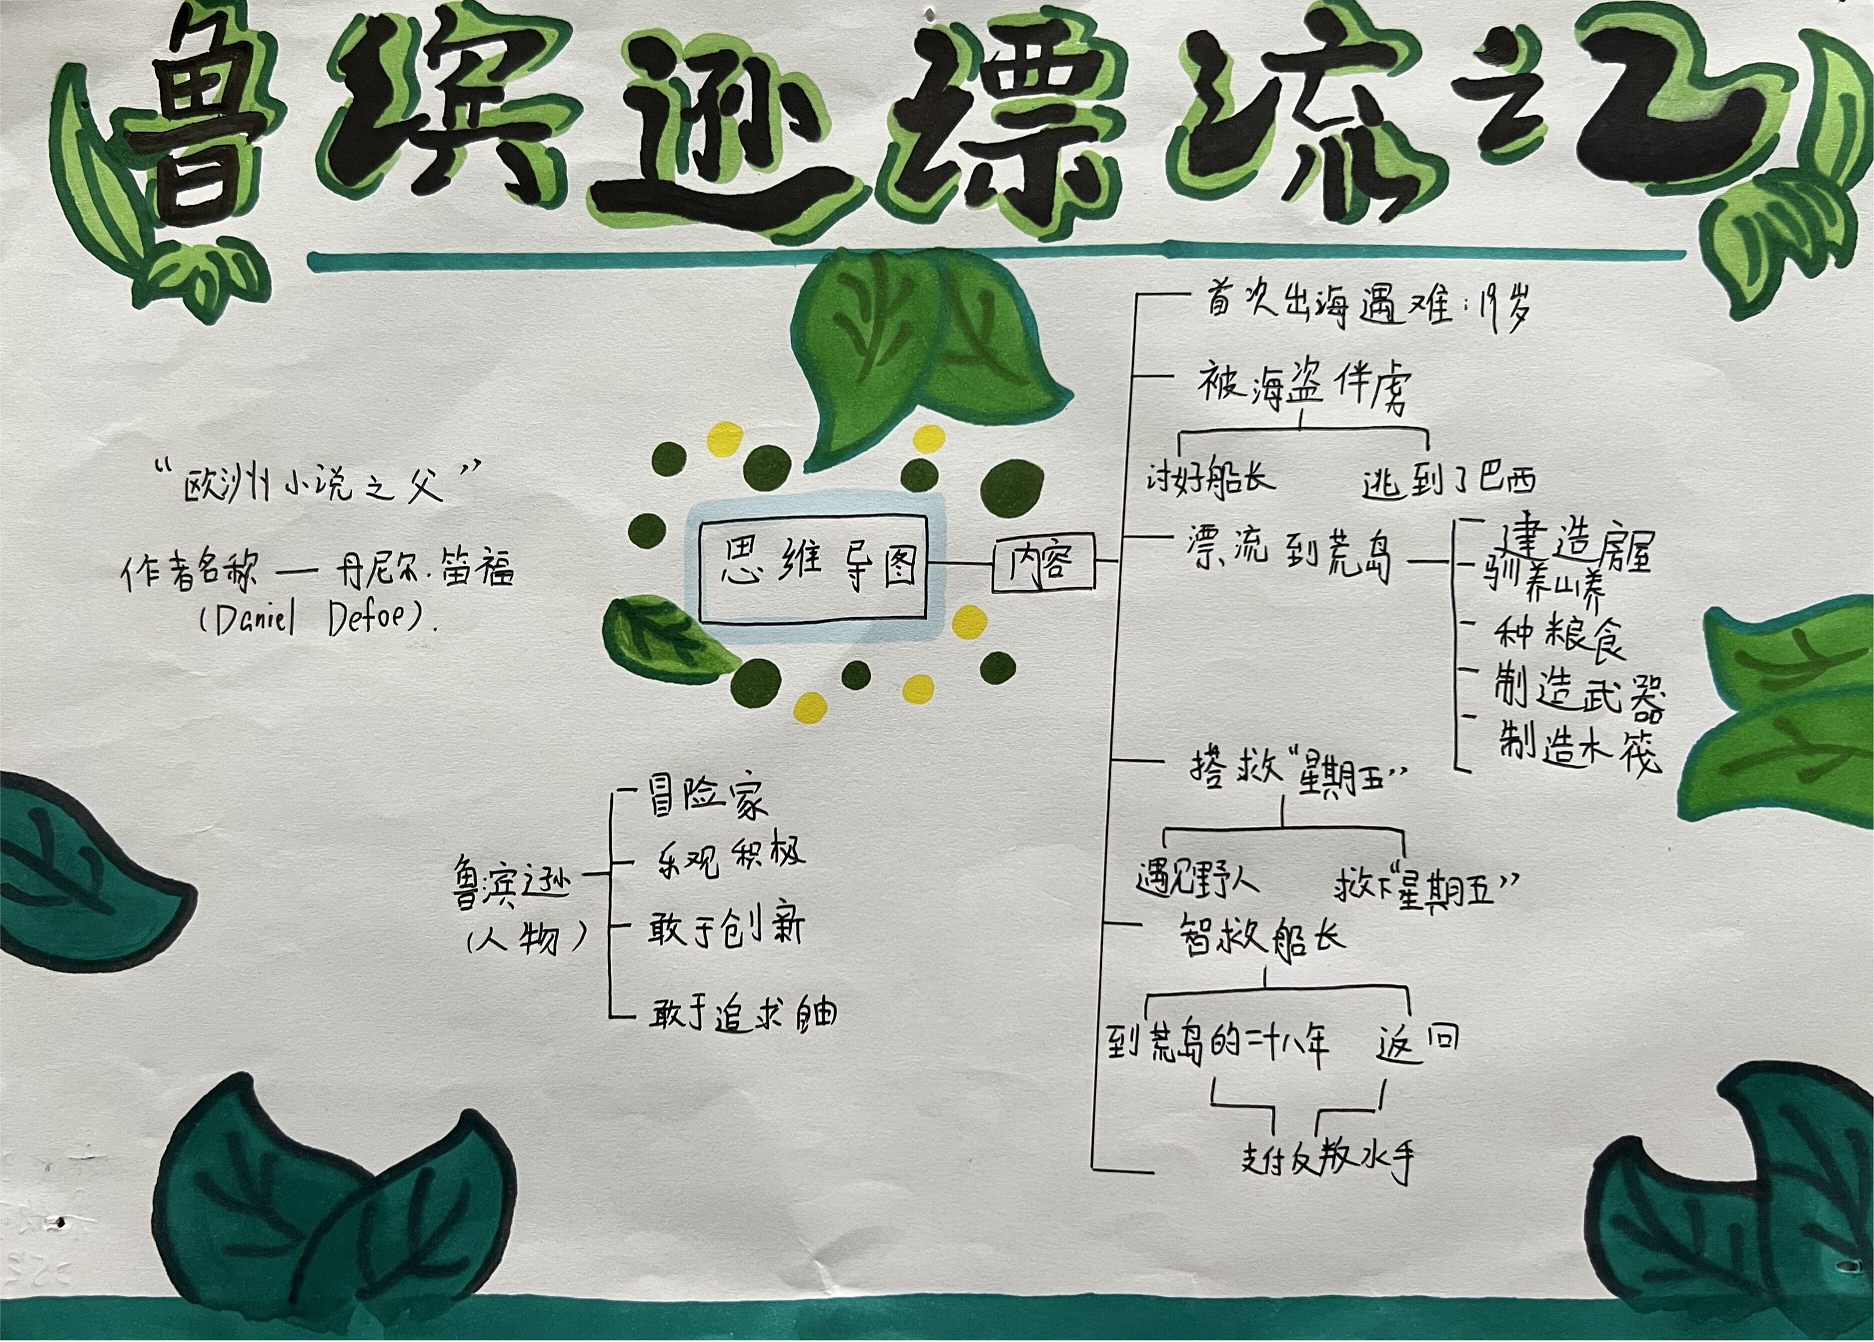 鲁滨逊缥流记
“欧洲小说之父”
作者名称—丹尼尔.笛福
(Daniel Defoe).
思维导图
内容
首次出海遇难:19岁
被海盗伴虏
讨好船长
逃到了巴西
漂流到荒岛
建造房屋
驯养山养
种粮食
制造武器
制造木筏
搭救“星期五”
遇见野人
救下“星期五”
智救船长
到荒岛的二十八年
返回
支付反叛水手
鲁滨逊
(人物)
冒险家
乐观积极
敢于创新
敢于追求自由